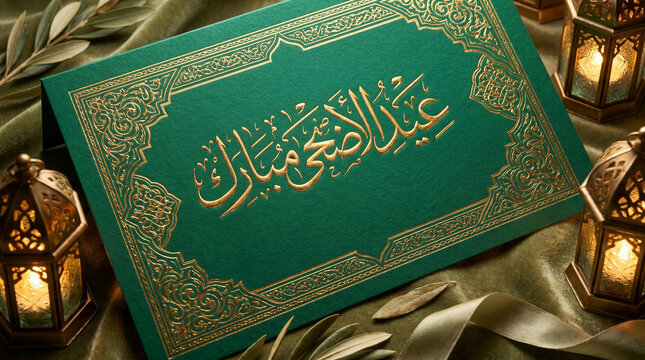 عِيدُ الأَضْحَى مُبَارَك